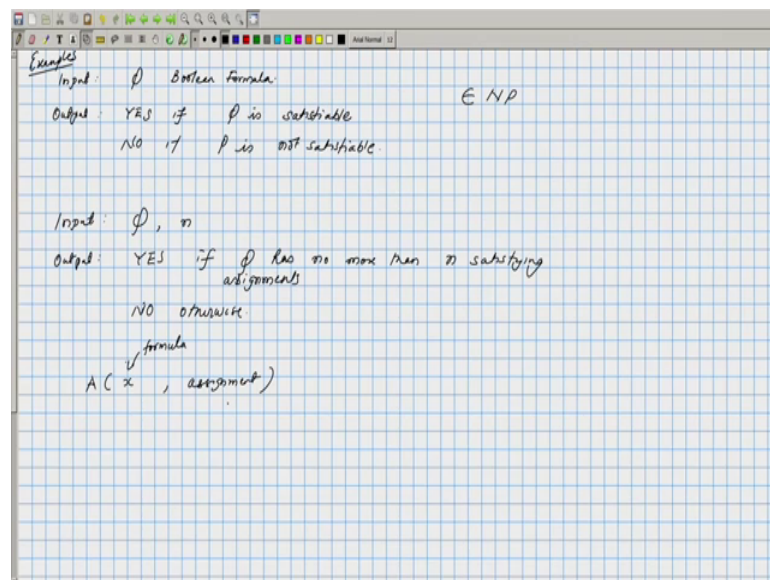 Examples
Input: φ Boolean Formula.
∈ NP
Output: YES if φ is satisfiable
NO if φ is not satisfiable.
Input: φ, n
Output: YES if φ has no more than n satisfying
assignments
NO otherwise.
formula
A( x , assignment)
Arial Normal 12